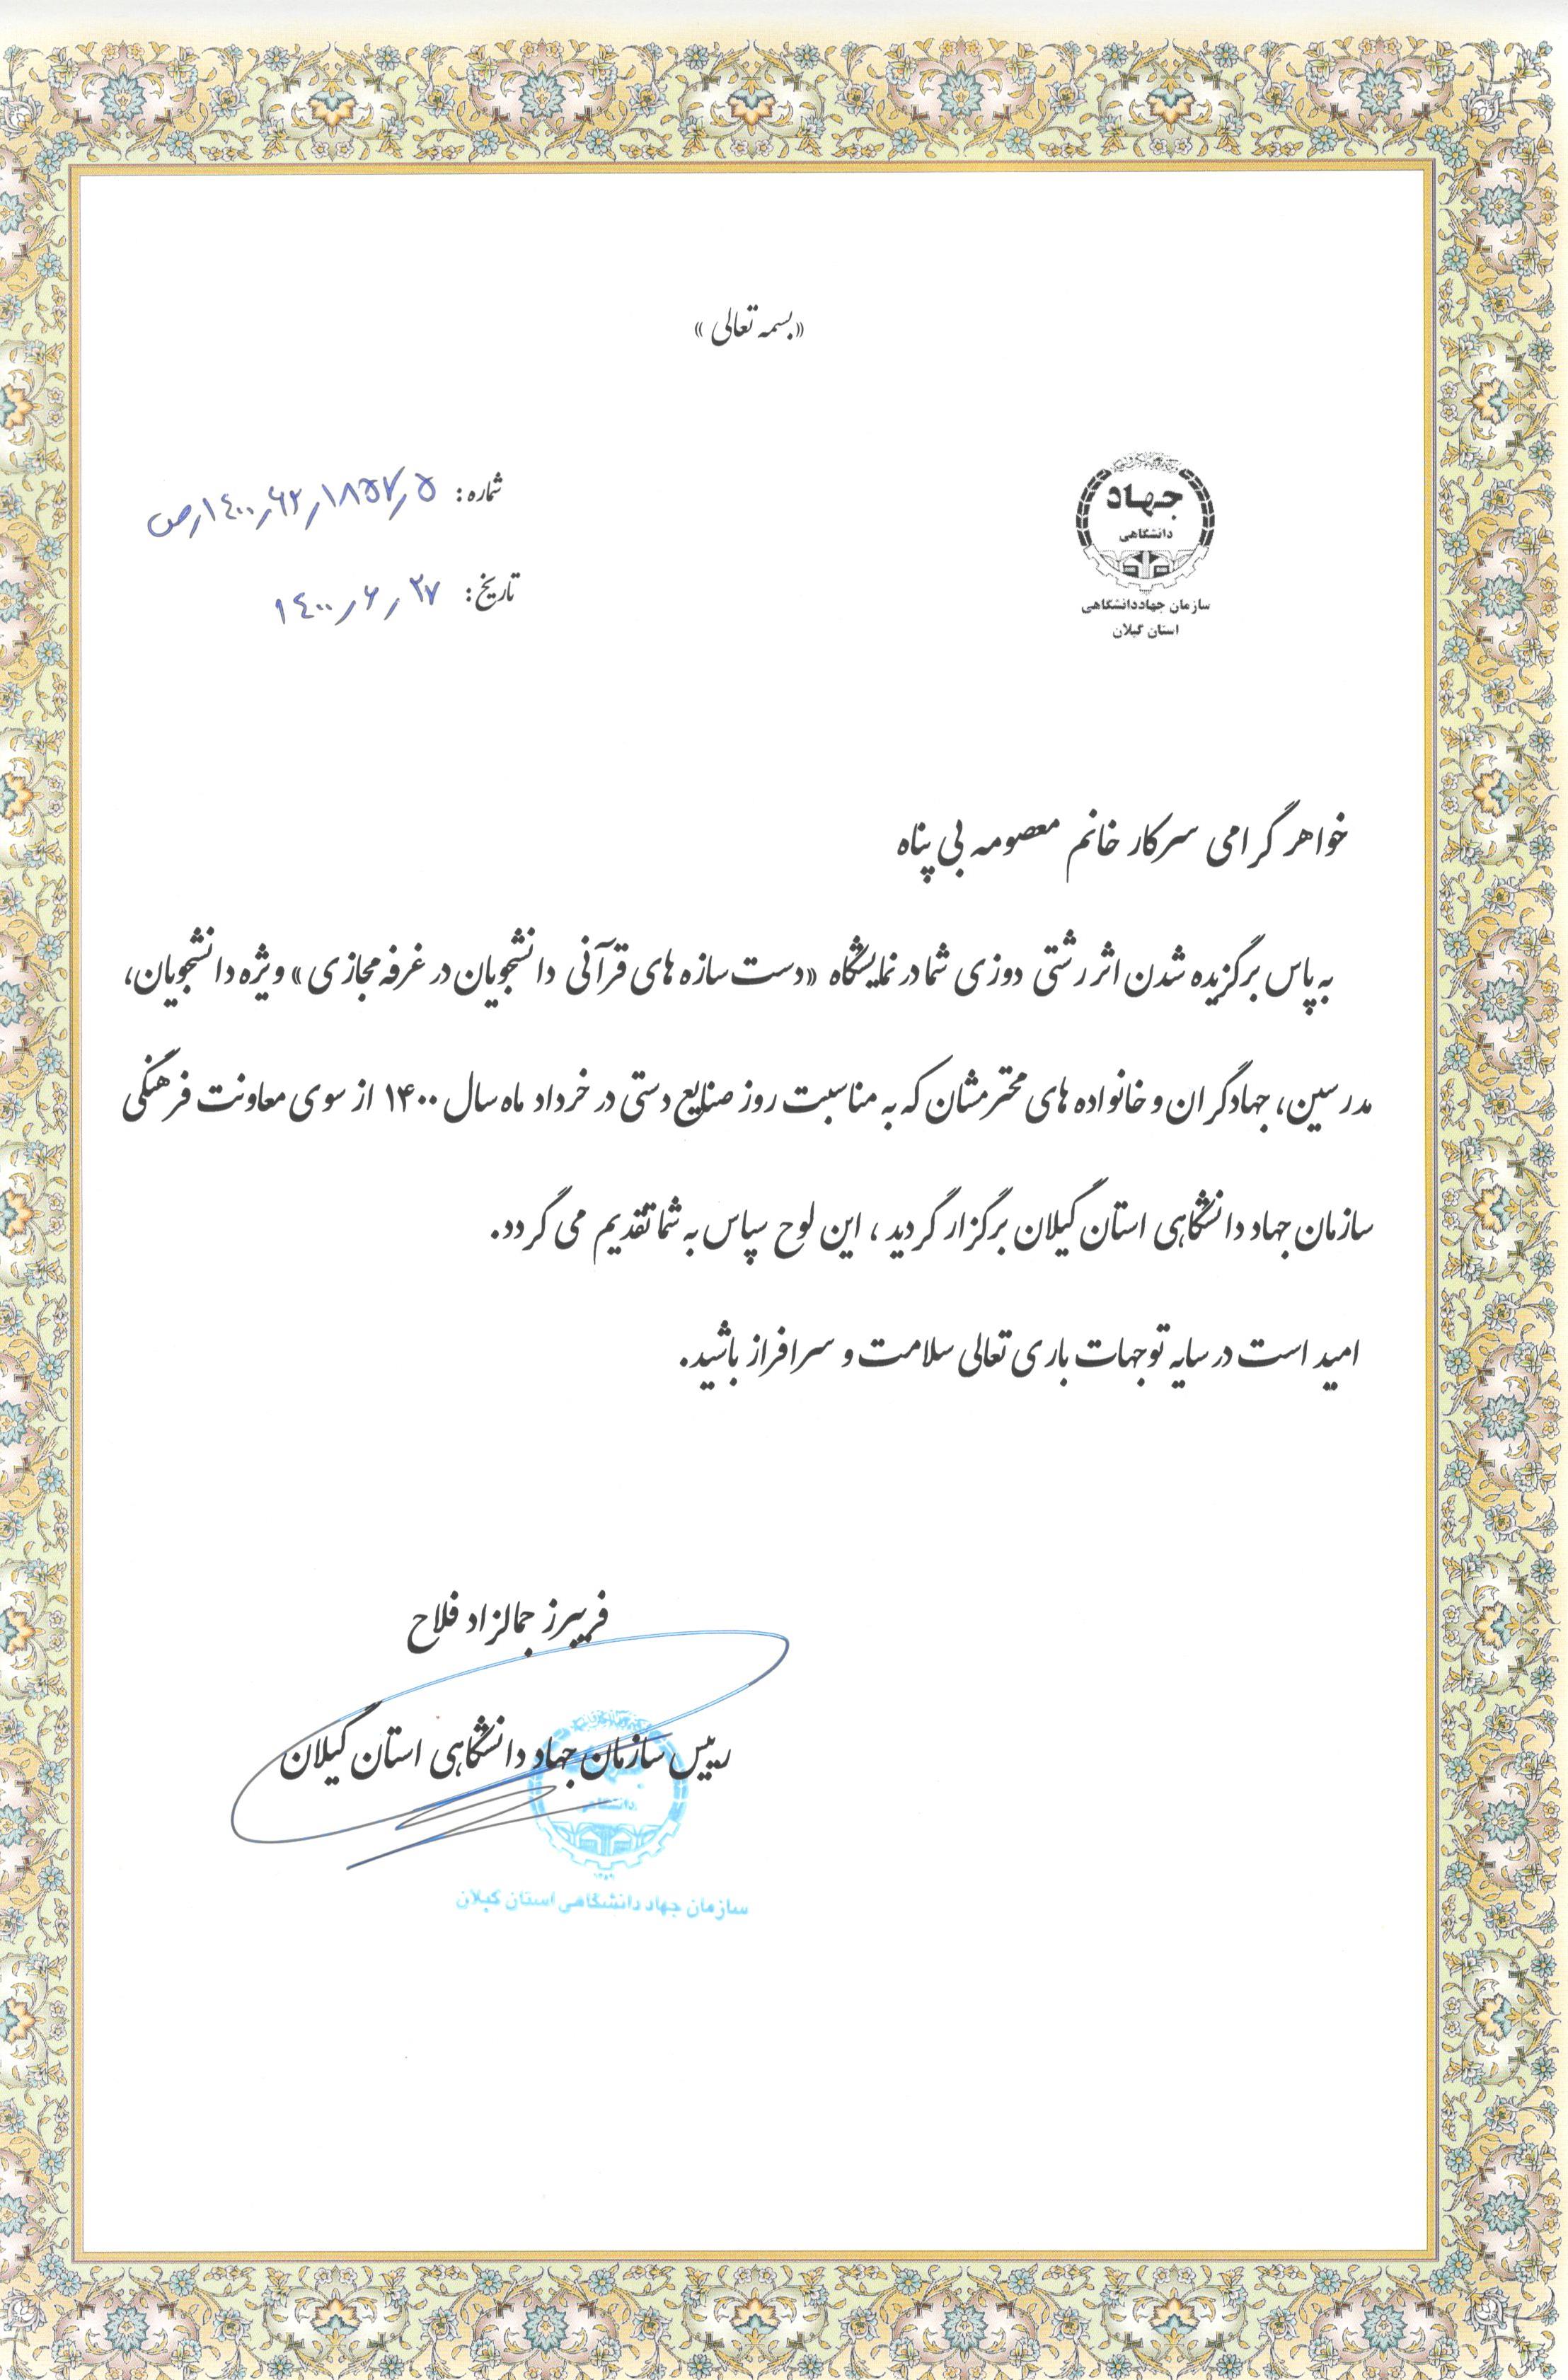 «بسمه تعالی»
جهاد
دانشگاهی
سازمان جهاددانشگاهی
استان گیلان
شماره: ۱۸۵۷٫۵٫۶۲٫۱۴۰۰٫ص
تاریخ: ۱۴۰۰٫۶٫۲۷
خواهر گرامی سرکار خانم معصومه بی پناه
به پاس برگزیده شدن اثر رشتی دوزی شما در نمایشگاه «دست سازه های قرآنی دانشجویان در غرفه مجازی» ویژه دانشجویان،
مدرسین، جهادگران و خانواده های محترمشان که به مناسبت روز صنایع دستی در خرداد ماه سال ۱۴۰۰ از سوی معاونت فرهنگی
سازمان جهاد دانشگاهی استان گیلان برگزار گردید ، این لوح سپاس به شما تقدیم می گردد.
امید است در سایه توجهات باری تعالی سلامت و سرافراز باشید.
فریبرز جمالزاد فلاح
رییس سازمان جهاد دانشگاهی استان گیلان
دانشگاهی
سازمان جهاد دانشگاهی استان گیلان